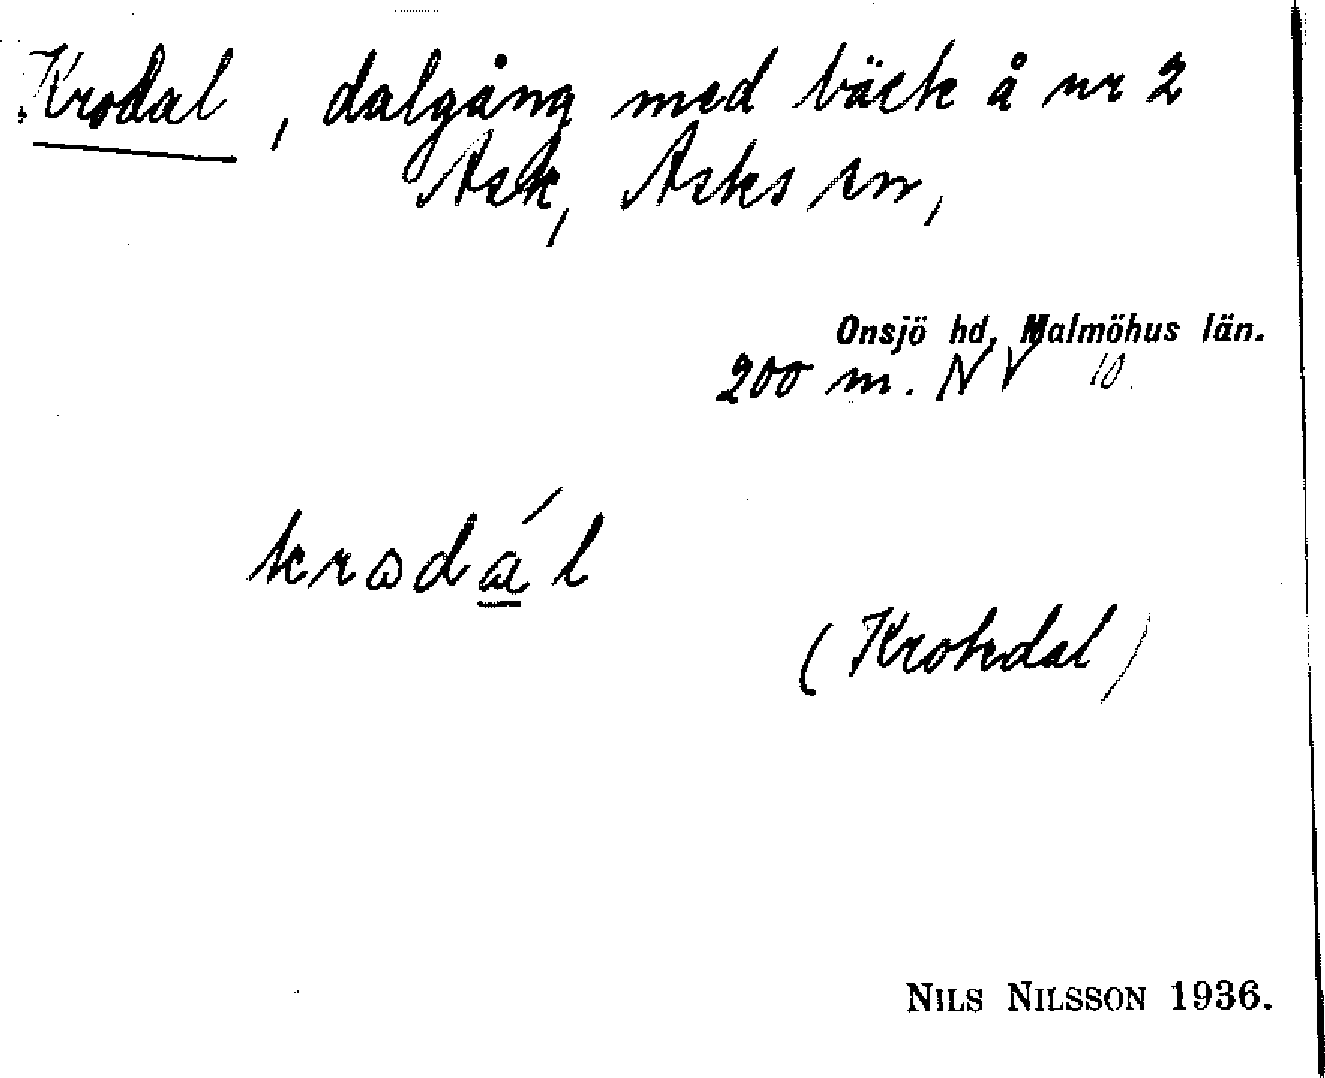 Krodal, dalgång med bäck å nr 2
Ask, Asks sn,
Onsjö hd, Malmöhus län.
200 m. NV 10.
krodál
(Krokdal)
NILS NILSSON 1936.